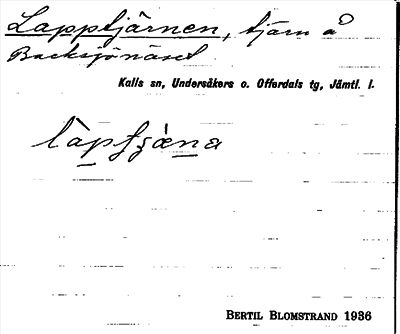 Lapptjärnen, tjärn å
Backsjönäset
Kalls sn, Undersåkers o. Offerdals tg, Jämtl. l.
BERTIL BLOMSTRAND 1936